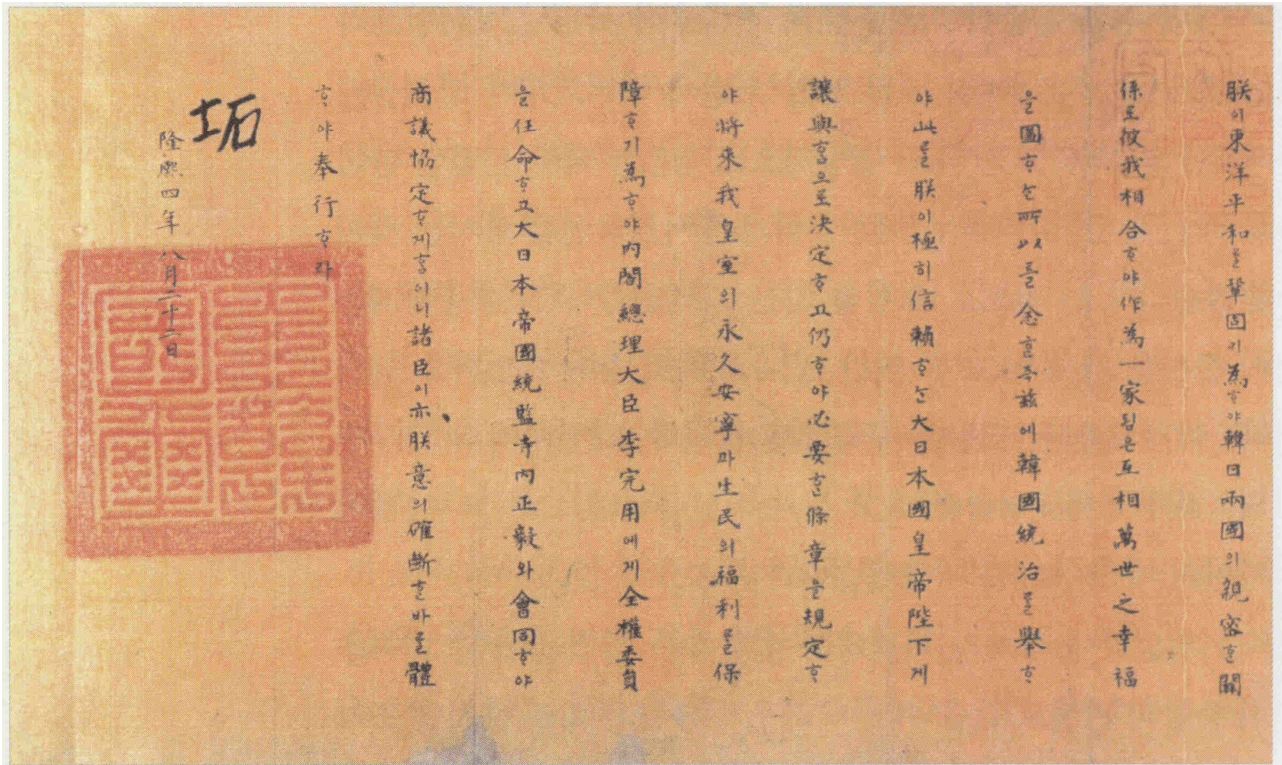 朕이東洋平和를鞏固히爲ᄒᆞ야韓日兩國의親密ᄒᆞᆫ關
係로彼我相合ᄒᆞ야作爲一家됨은互相萬世之幸福
을圖ᄒᆞᄂᆞᆫ所以를念ᄒᆞᆫ즉玆에韓國統治를擧ᄒᆞ
야此를朕이極히信賴ᄒᆞᄂᆞᆫ大日本國皇帝陛下게
讓與홈으로決定ᄒᆞ고仍ᄒᆞ야必要ᄒᆞᆫ條章을規定ᄒᆞ
야將來我皇室의永久安寧과生民의福利를保
障ᄒᆞ기爲ᄒᆞ야內閣總理大臣李完用에게全權委員
을任命ᄒᆞ고大日本帝國統監寺內正毅와會同ᄒᆞ야
商議協定ᄒᆞ게홈이니諸臣이亦朕意의確斷ᄒᆞᆫ바를體
ᄒᆞ야奉行ᄒᆞ라
坧
隆熙四年八月二十二日